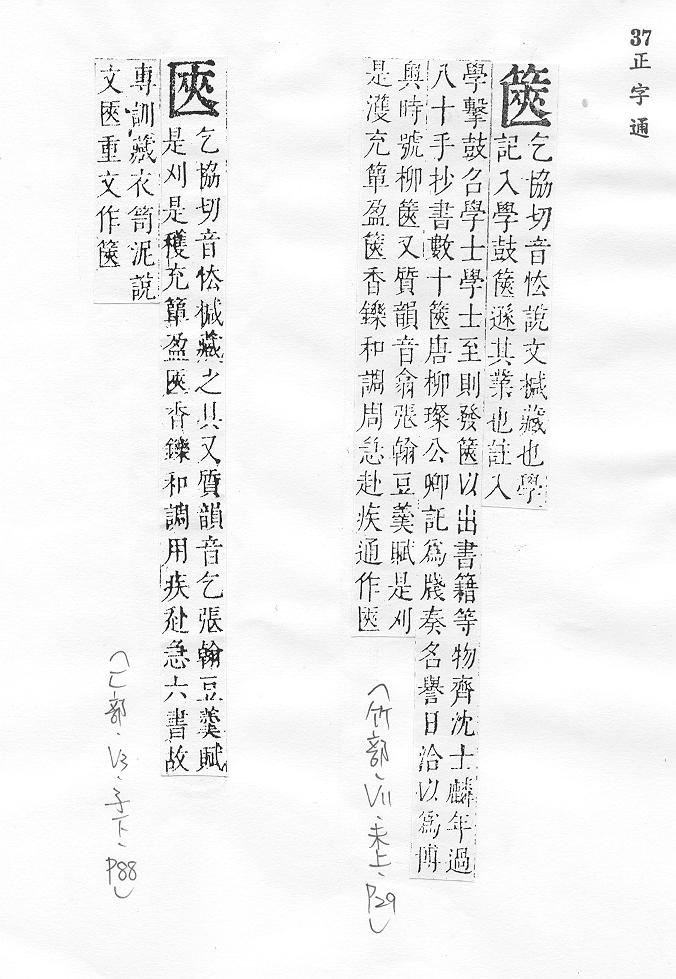 37 正字通
篋 乞協切音怯說文椷藏也學
記入學鼓篋遜其業也註入
學擊鼓名學士學士至則發篋以出書籍等物齊沈士麟年過
八十手抄書數十篋唐柳璨公卿記爲牋奏名譽日洽以爲博
奧時號柳篋又質韻音翕張翰豆羹賦是刈
是濩充簞盈篋香鑠和調周急赴疾通作匧
(竹部、V11、未上、P29)
匧 乞協切音怯椷藏之具又質韻音乞張翰豆羹賦
是刈是穫充簞盈匧香鑠和調用疾赴急六書故
專訓藏衣笥泥說
文匧重文作篋
(匚部、V3、子下、P88)